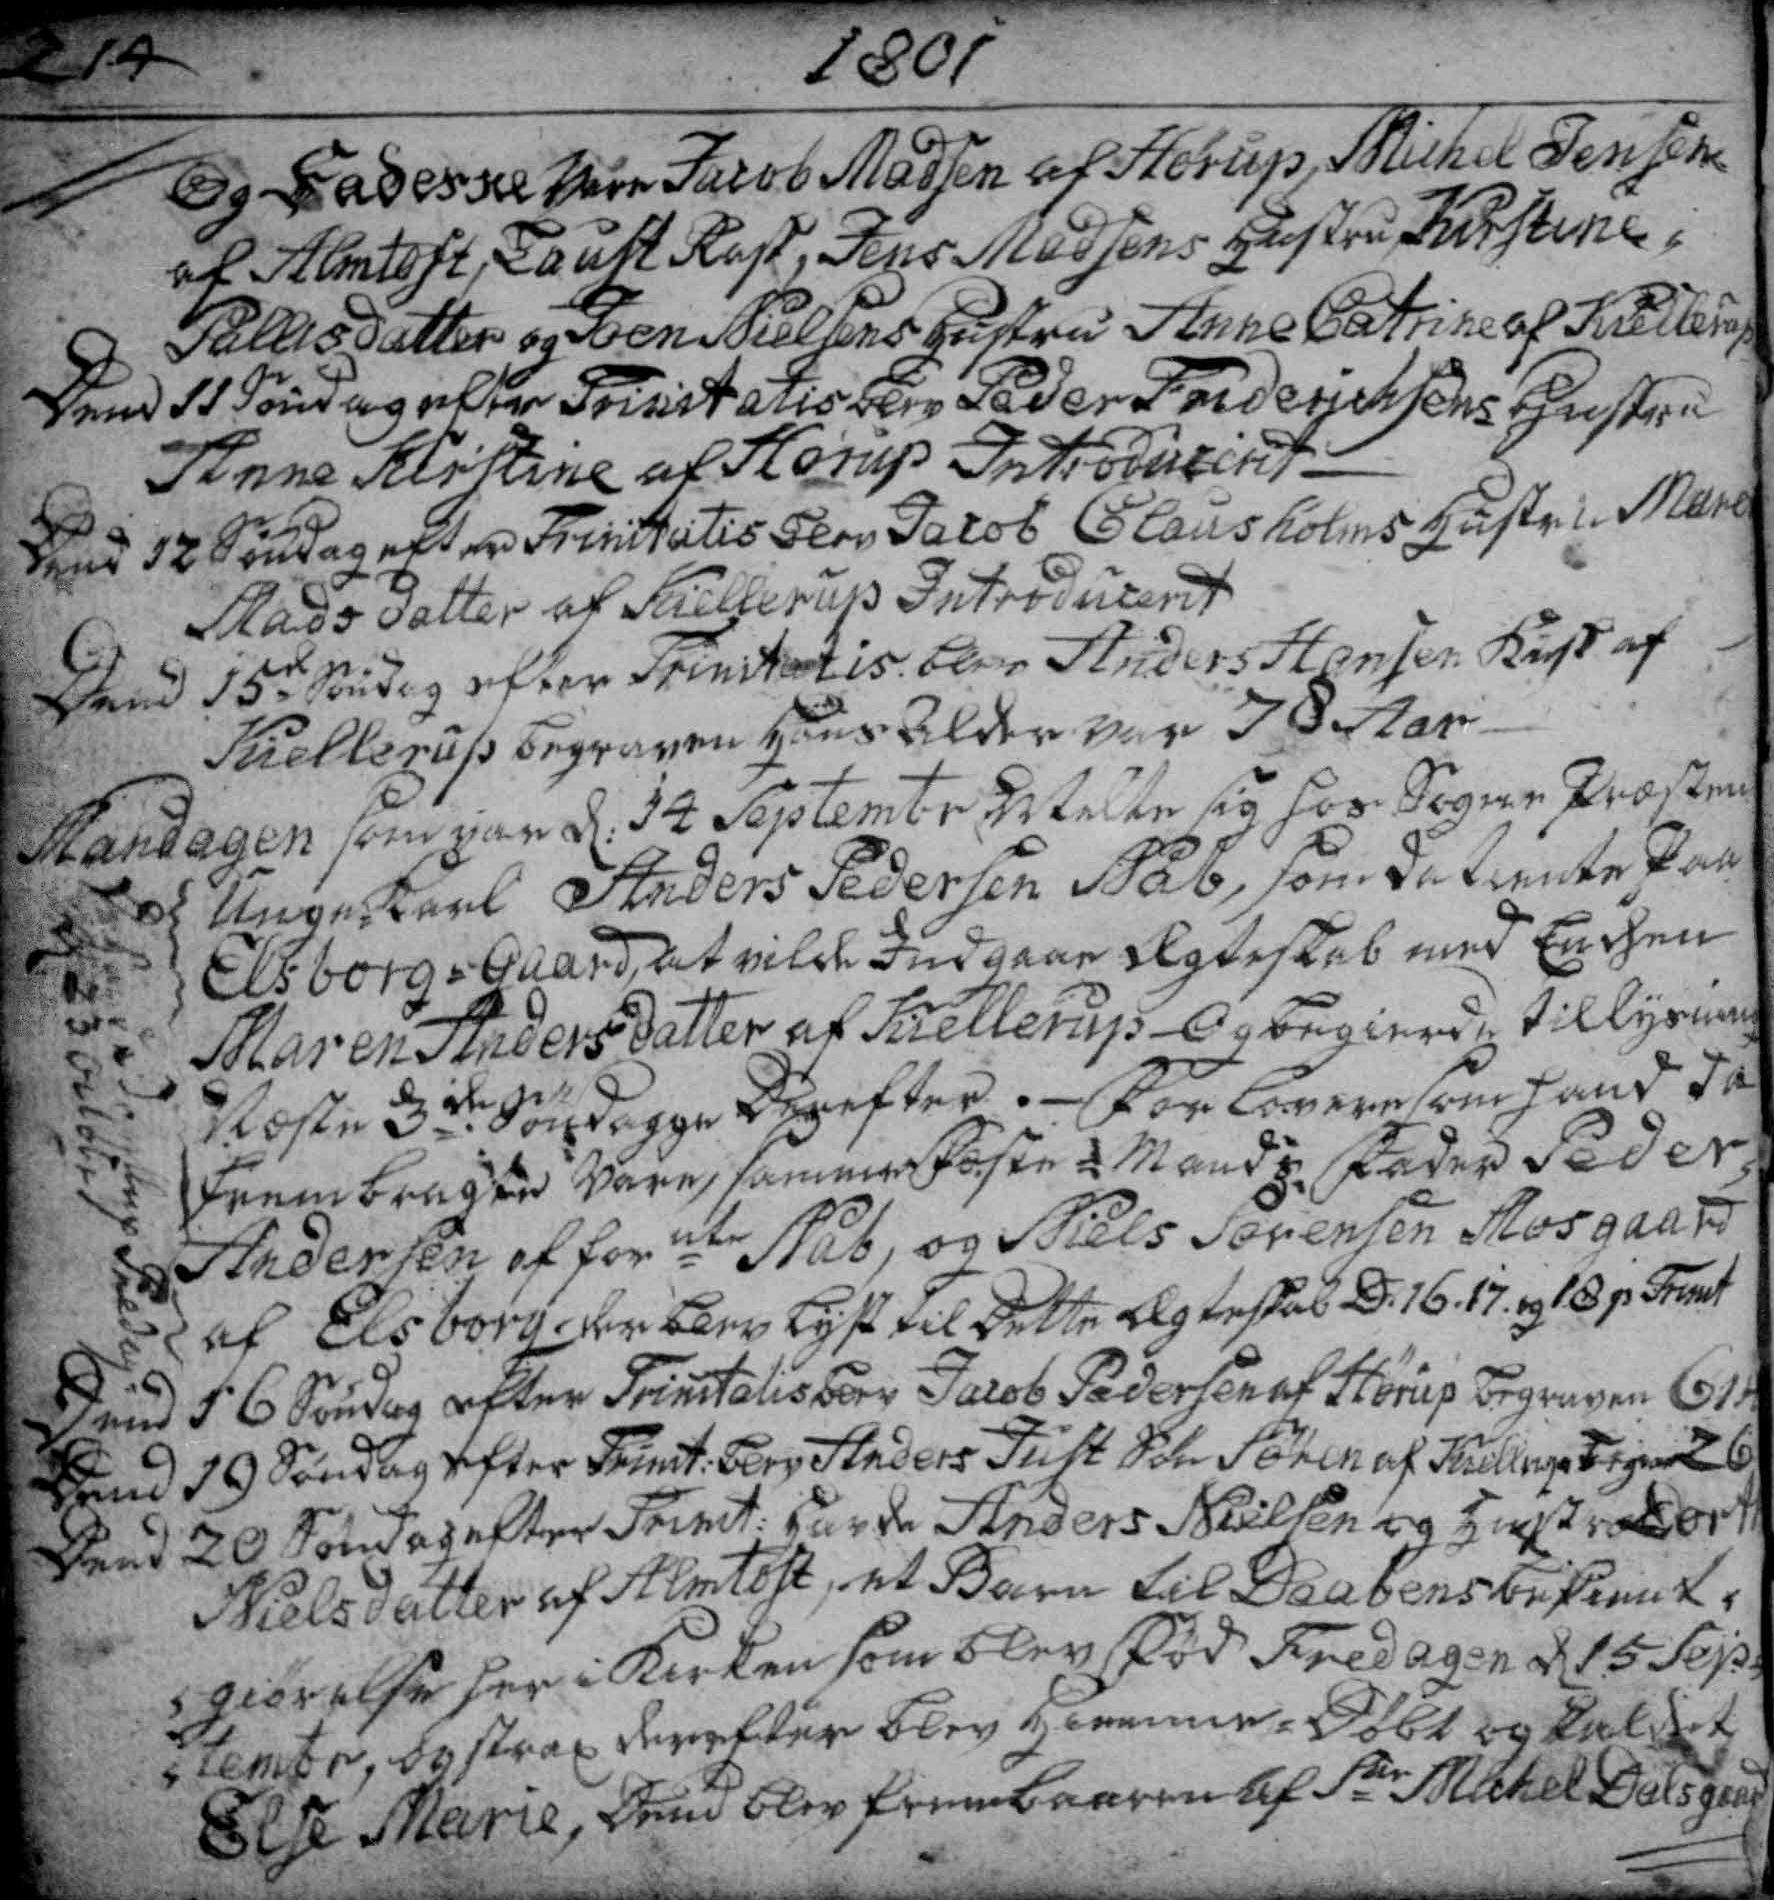 214
1801
Og Faderne vare Jacob Madsen af Hørup, Michel Jensen
af Almtoft, Faust Rask, Jens Madsens Hustru, Kirstine
Pallisdatter og Joen Nielsens Hustru Anne Catrine af Kiellerup
Dend 11 Søndag efter Trinitatis blev Peder Friderichsens Hustru
Anne Kirstine af Hørup Introducerit
Dend 12 Søndag efter Trinitatis blev Jacob Clausholms Hustru Mare
Madsdatter af Kiellerup Introducerit
Dend 15de Søndag efter Trinitatis blev Anders Hansen Kusk af
Kiellerup begraven Hans Alder var 78 Aar
Mandagen som var d: 14 Septembr Meldte sig hos Sogne Præsten
Unge Karl Anders Pedersen Nab, som da tiente Paa
Elsborg=Gaard, at vilde Indgaae Ægteskab med Enchen
Maren Andersdatter af Kiellerup Og begierde tillysning
Næste 3de Søndagge Derefter. — Forlovere som hand da
frembragte vare, samme Fæste=Mands Fader Peder
Andersen af for nte Nab, og Niels Sørensen Mosgaard
af Elsborg der blev lyst til Dette Ægteskab D. 16. 17. og 18 p Trinit
d 23 October
Fredag
Dend 16 Søndag efter Trinitatis blev Jacob Pedersen af Hørup begraven 61
Dend 19 Søndag efter Trinit: blev Anders Just Søn Søren af Kiellerup 26
Dend 20 Søndag efter Trinit: havde Anders Nielsen og Hustrue Dort
Nielsdatter af Almtoft, et Barn til Daabens bekient
giørelse her i Kirken som blev Fød Fredagen d 15 Sep
tembr, og strax derefter blev Hiemme=Døbt og kaldet
Else Marie, Dend blev frembaaren af Sr Michel Dalsgaard